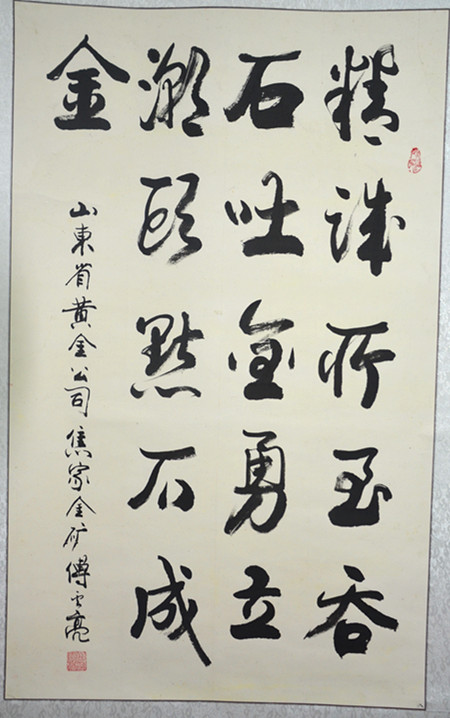 精誠所至吞
石吐金勇立
潮頭點石成
金
山東省黄金公司焦家金矿傅云亮